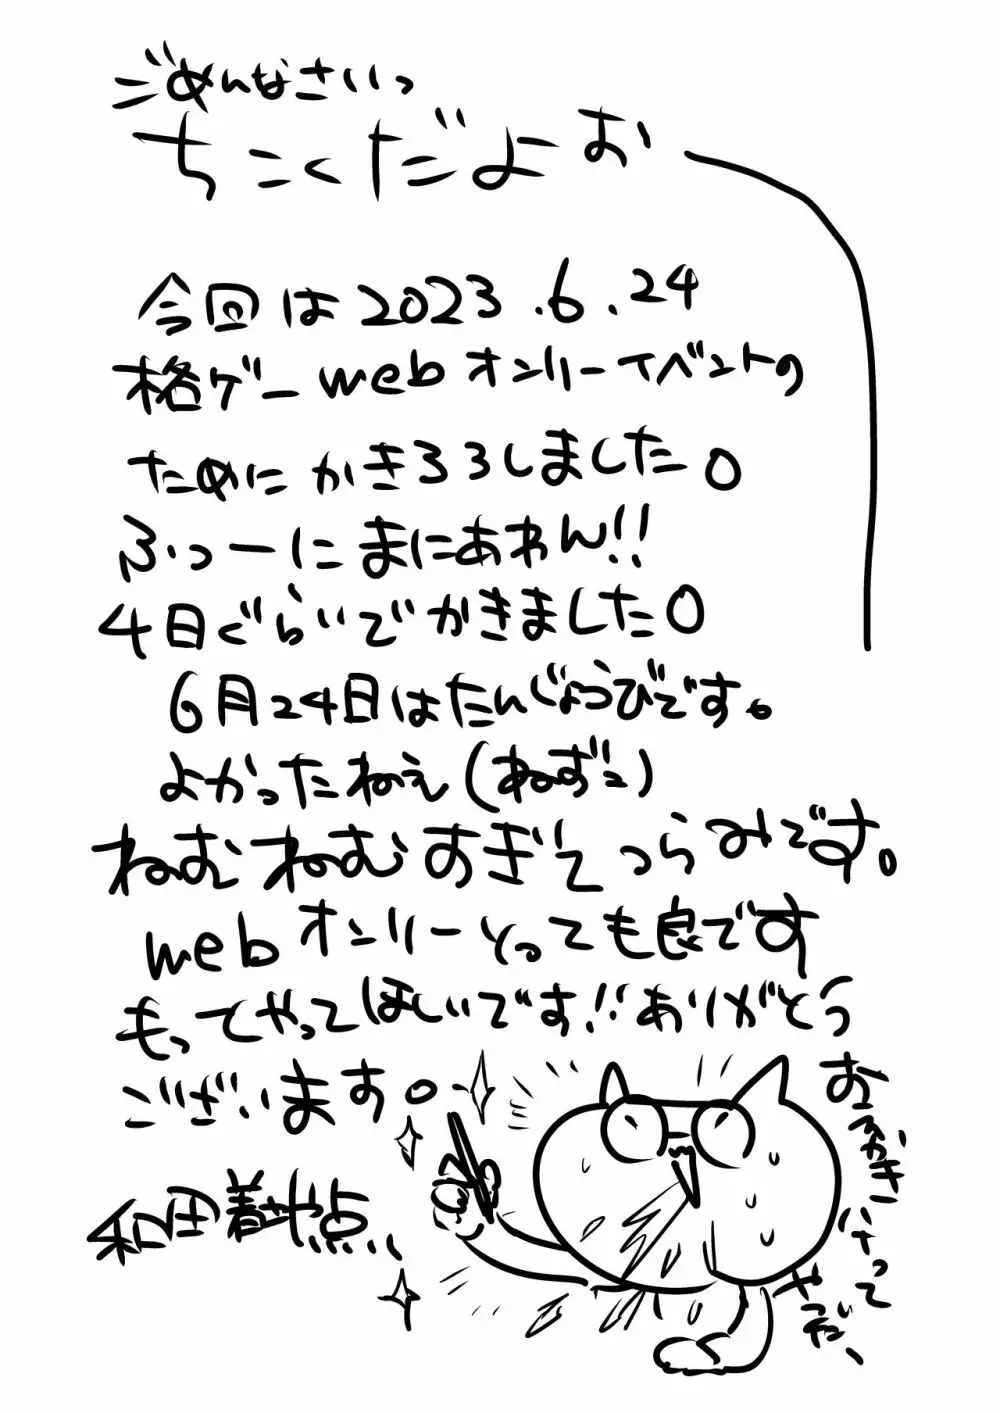 ごめんなさいっ
ちこくだよお
今回は2023.6.24
格ゲーwebオンリーイベントの
ためにかきろろしました。
ふっーにまにあわん!!
4日ぐらいでかきました。
6月24日はたんじょうびです。
よかったねえ(ねずこ)
ねむねむすぎてつらみです。
webオンリーとっても良です
もってやってほしいです!!ありがとう
ございます。
おえかきはって
やだ、
和田